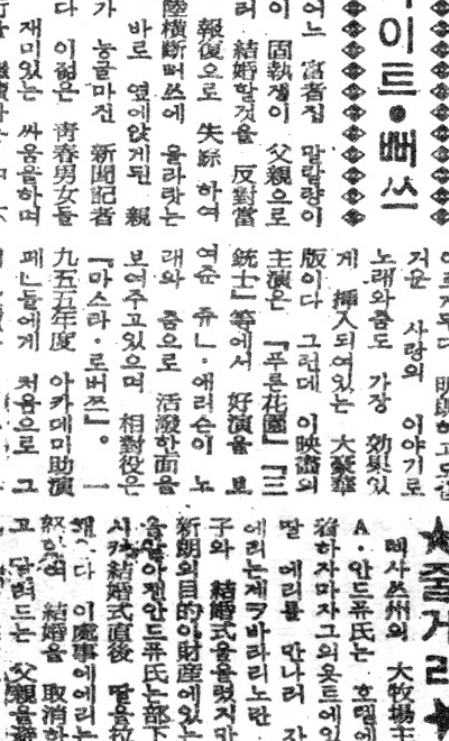 이트·뻐쓰
어느 富者집 말랄량이
이 固執쟁이 父親으로
러 結婚할것을 反對當
報復으로 失踪 하여
陸橫斷뻐쓰에 올라탓는
바로 옆에앉게된 親
가 능글마진 新聞記者
다 이젊은 靑春男女들
재미있는 싸움을하며
거운 사랑의 이야기로
노래와춤도 가장 効果있
게 揷入되여있는 大豪華
版이다 그런데 이映畵의
主演은 『푸른花園』『三
銃士』等에서 好演을 보
여준 쥬ㄴ·애리슨이 노
래와 춤으로 活潑한面을
보여주고있으며 相對役은
『마스라·로버쯔』。 一
九五五年度 아카데미助演
페ㄴ들에게 처음으로 그
★줄거리★
테사쓰州의 大牧場主
A·안드류氏는 호텔에
하자마자그의욧트에있
딸 에리를 만나러 자
에리는제코바라리노란
子와 結婚式을올렸지만
新朗의目的이財産에있는
을알아챈안드류氏는部下
시켜結婚式直後 딸을拉
다 이處事에에리는
結婚을 取消하
고 달려드는 父親을